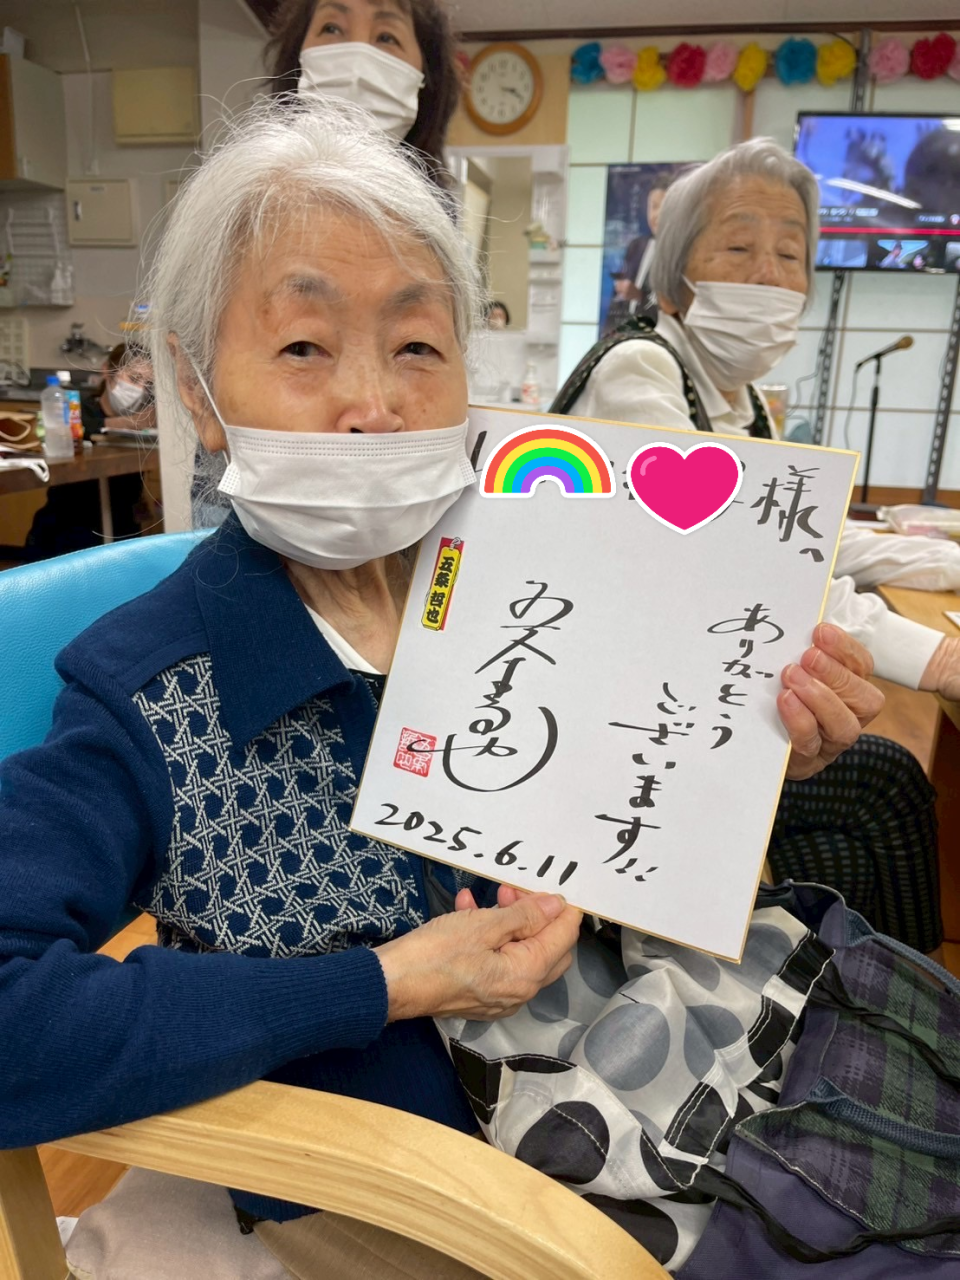 様へ
ありがとう
ございます!!
五条哲也
五条哲也
2025.6.11